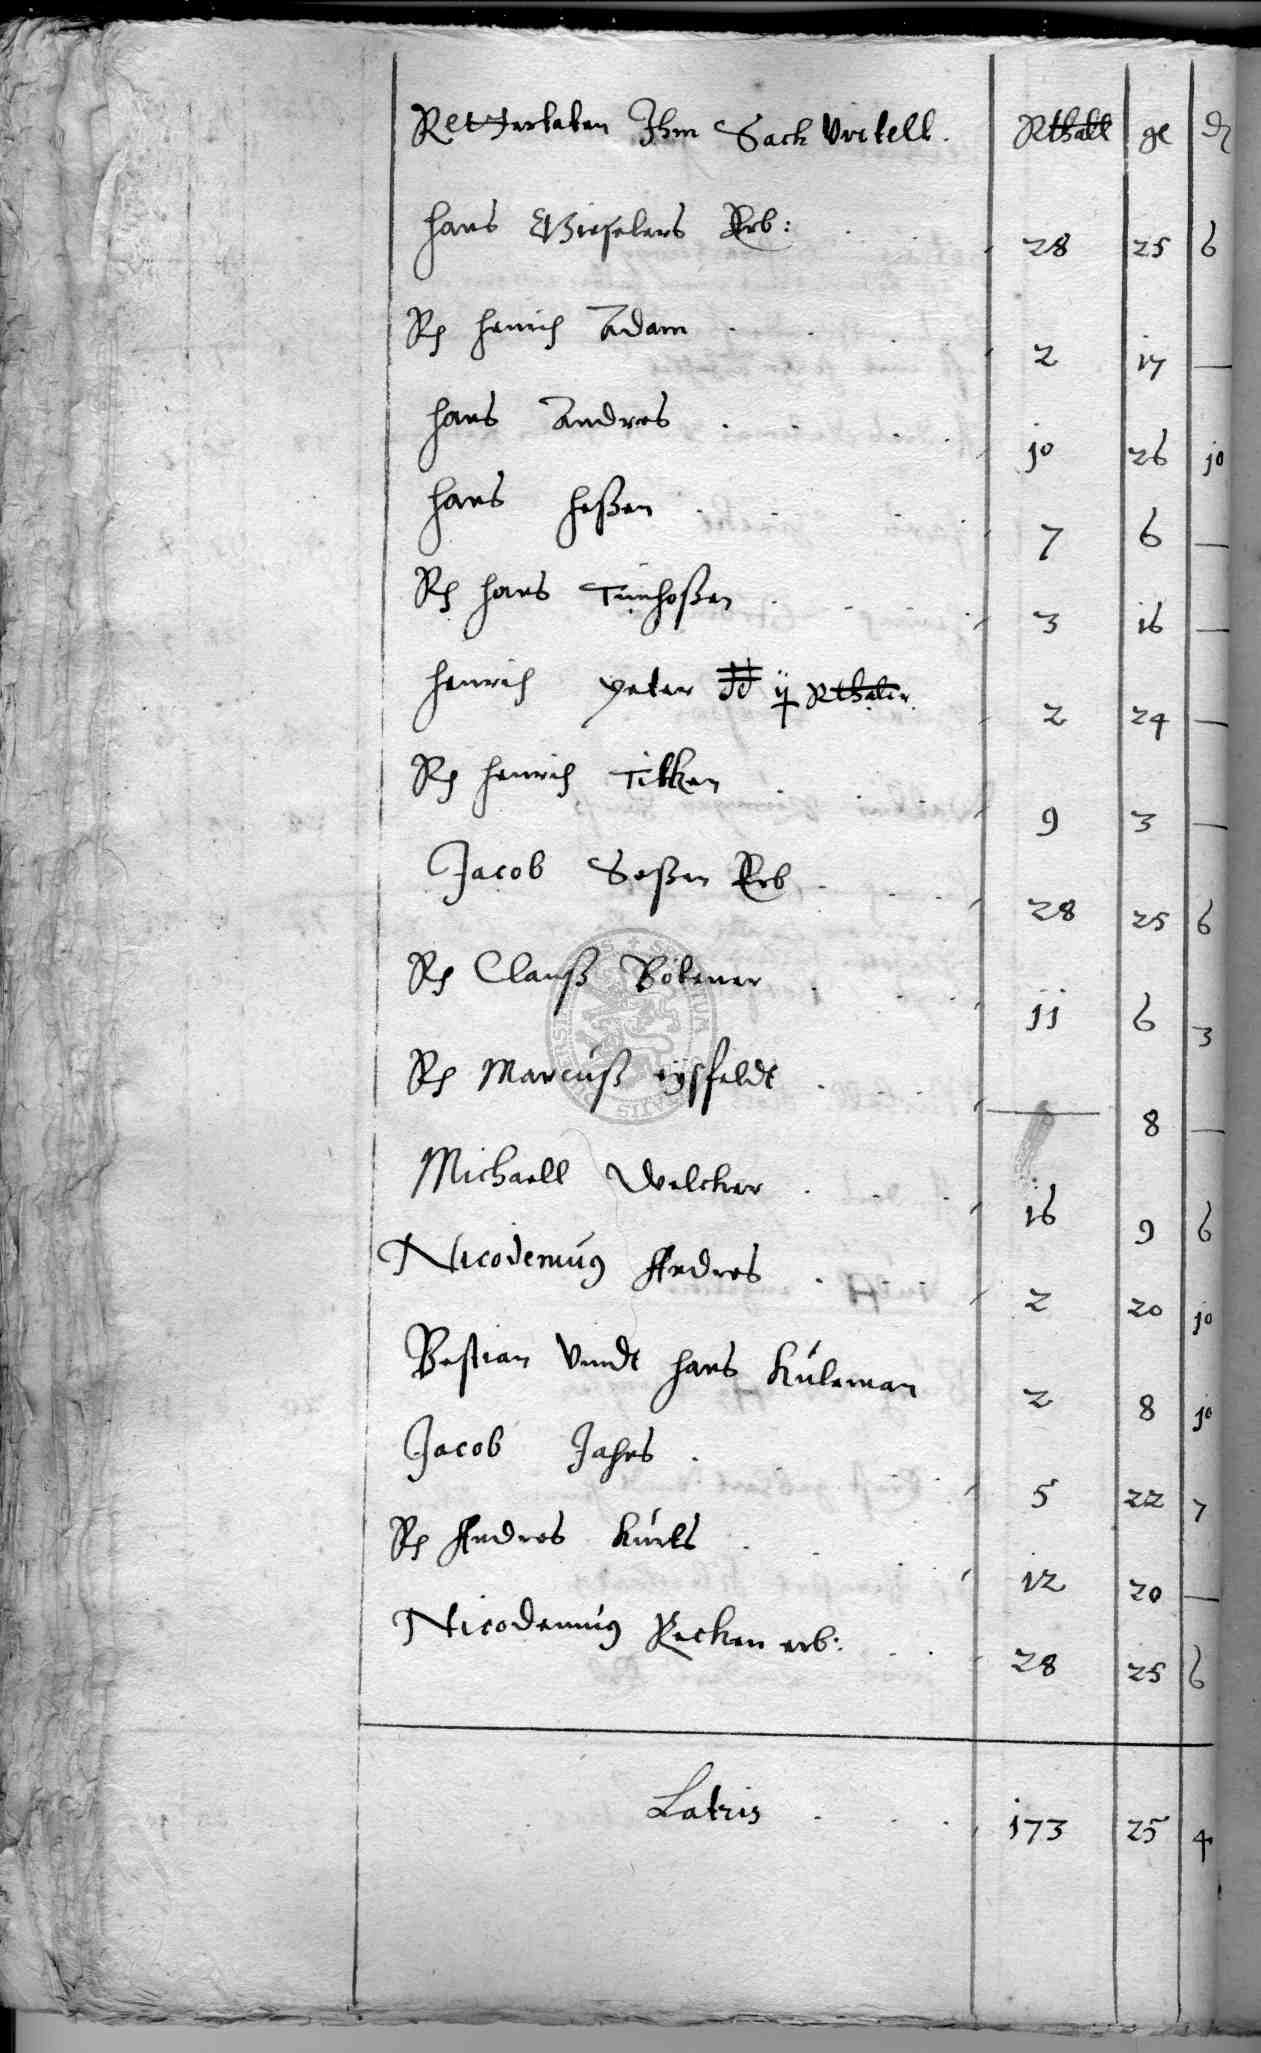 Resterlaten Ihm Sack Virtell. Rthall gl d
Hans Gieselers Erb: 28 25 6
R Henrich Adam 2 17 —
Hans Andres 10 26 10
Hans Heßen 7 6 —
R Hans 3 16 —
Henrich Peter ij Rthaler 2 24 —
R Henrich Tikken 9 3 —
Jacob Seßen Erb 28 25 6
R Clauß Bötener 11 6 3
R Marcuß eysfeldt — 8 —
Michaell Welcker 16 9 6
Nicodemus Andres 2 20 10
Bastian Vnndt Hans Kuleman 2 8 10
Jacob Jahns 5 22 7
R Andres Kurts 12 20 —
Nicodemus Becken erb: 28 25 6
Latris 173 25 4